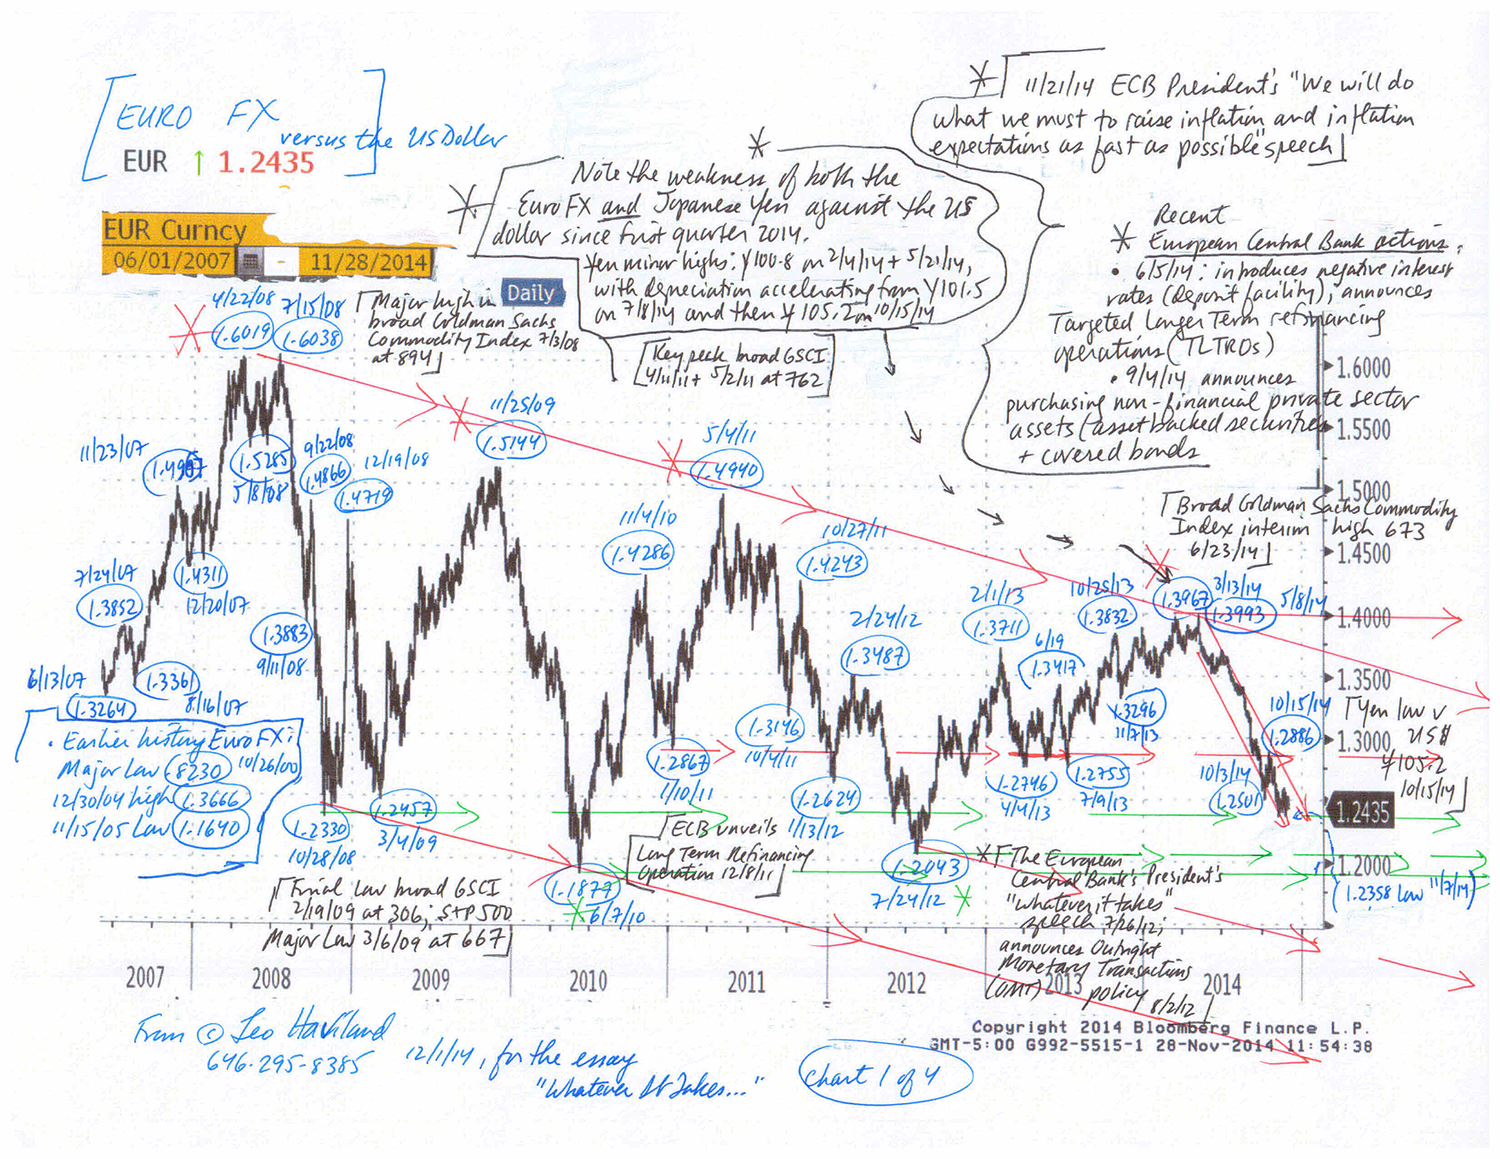 EURO FX
versus the US Dollar
EUR ↑ 1.2435
EUR Curncy
06/01/2007 - 11/28/2014
Daily
* 11/21/14 ECB President's "We will do
what we must to raise inflation and inflation
expectations as fast as possible" speech
* Note the weakness of both the
Euro FX and Japanese Yen against the US
dollar since first quarter 2014.
Yen minor highs: ¥100.8 on 2/4/14 + 5/21/14,
with depreciation accelerating from ¥101.5
on 7/8/14 and then ¥105.2 on 10/15/14
Recent
* European Central Bank actions:
• 6/5/14: introduces negative interest
rates (deposit facility); announces
Targeted Longer Term refinancing
operations (TLTROs)
• 9/4/14 announces
purchasing non-financial private sector
assets (asset backed securities
+ covered bonds
Major high in
broad Goldman Sachs
Commodity Index 7/3/08
at 894
Key peak broad GSCI
4/11/11 + 5/2/11 at 762
Broad Goldman Sachs Commodity
Index interim high 673
6/23/14
4/22/08
1.6019
7/15/08
1.6038
11/23/07
1.4967
1.5285
5/8/08
9/22/08
1.4866
12/19/08
1.4719
11/25/09
1.5144
5/4/11
1.4940
11/4/10
1.4286
10/27/11
1.4243
7/24/07
1.3852
1.4311
12/20/07
1.3883
9/11/08
2/24/12
1.3487
2/1/13
1.3711
6/19
1.3417
10/25/13
1.3832
1.3967
3/13/14
1.3993
5/8/14
6/13/07
1.3264
1.3361
8/16/07
1.3146
10/4/11
1.2867
1/10/11
1.2624
1/13/12
1.3296
11/7/13
1.2746
4/4/13
1.2755
7/9/13
10/15/14
1.2886
10/3/14
1.2501
Yen low v
US$
¥105.2
10/15/14
• Earlier history Euro FX:
Major Low .8230 10/26/00
12/30/04 high 1.3666
11/15/05 Low 1.1640
1.2330
10/28/08
1.2457
3/4/09
1.1877
6/7/10
1.2043
7/24/12
(1.2358 low 11/7/14)
ECB unveils
Long Term Refinancing
Operation 12/8/11
Final Low broad GSCI
2/19/09 at 306; S+P 500
Major Low 3/6/09 at 667
* The European
Central Bank's President's
"whatever it takes"
speech 7/26/12;
announces Outright
Monetary Transactions
(OMT) policy 8/2/12
1.6000
1.5500
1.5000
1.4500
1.4000
1.3500
1.3000
1.2435
1.2000
2007 2008 2009 2010 2011 2012 2013 2014
Copyright 2014 Bloomberg Finance L.P.
GMT-5:00 G992-5515-1 28-Nov-2014 11:54:38
From © Leo Haviland
646-295-8385
12/1/14, for the essay
"Whatever It Takes..."
Chart 1 of 4